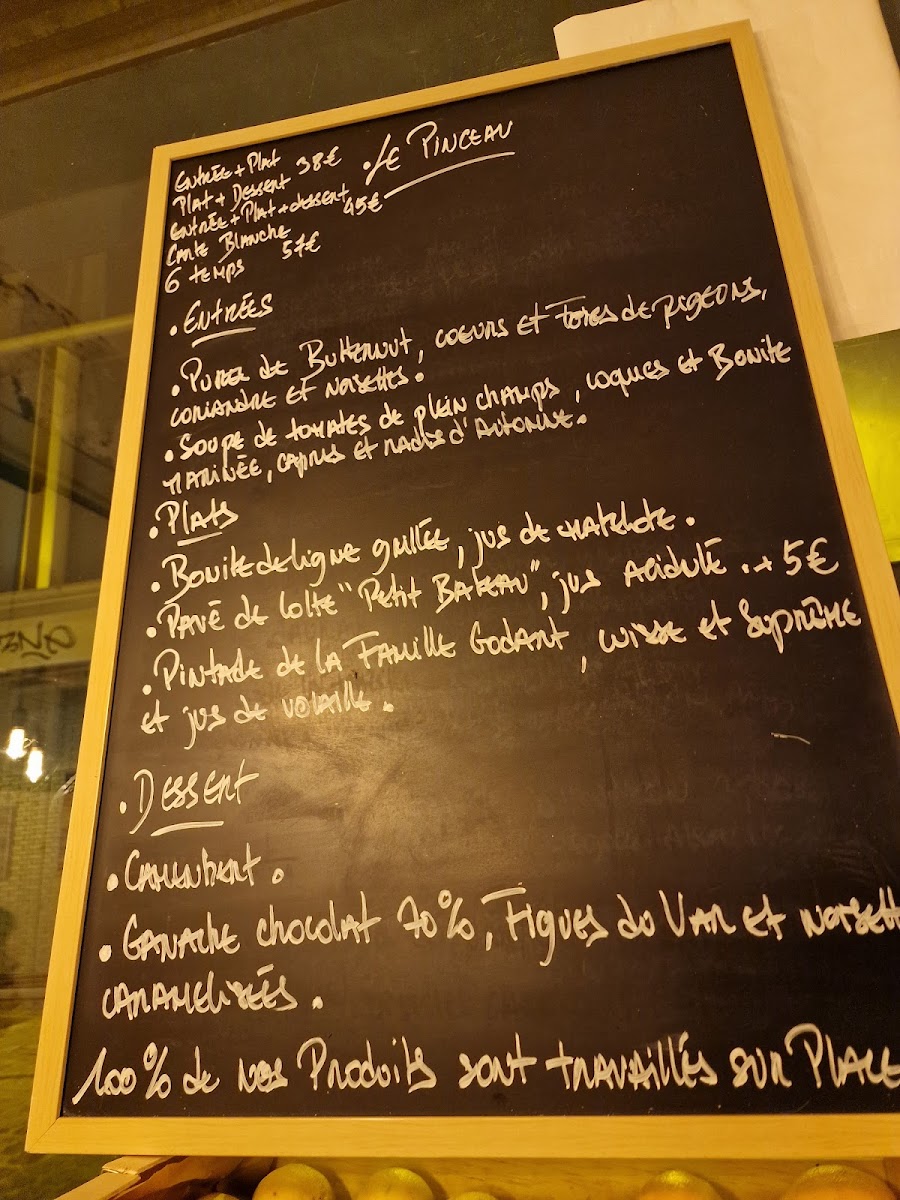 Entrée + Plat
Plat + Dessert 38€
Entrée + Plat + dessert 45€
Carte Blanche
6 temps 57€
. Le Pinceau
. Entrées
. Puree de Butternut, coeurs et Foies de pigeons,
coriandre et noisettes.
. Soupe de tomates de plein champs, coques et Bonite
Marinée, capres et radis d'Automne.
. Plats
. Bonite de ligne grillée, jus de matelote.
. Pavé de lotte "Petit Bateau", jus Acidulé. + 5€
. Pintade de la Famille Godant, cuisse et Suprême
et jus de volaille.
. Dessert
. Camembert.
. Ganache chocolat 70%, Figues du Var et noisett
caramelisées.
100% de nos Produits sont travaillés sur Place